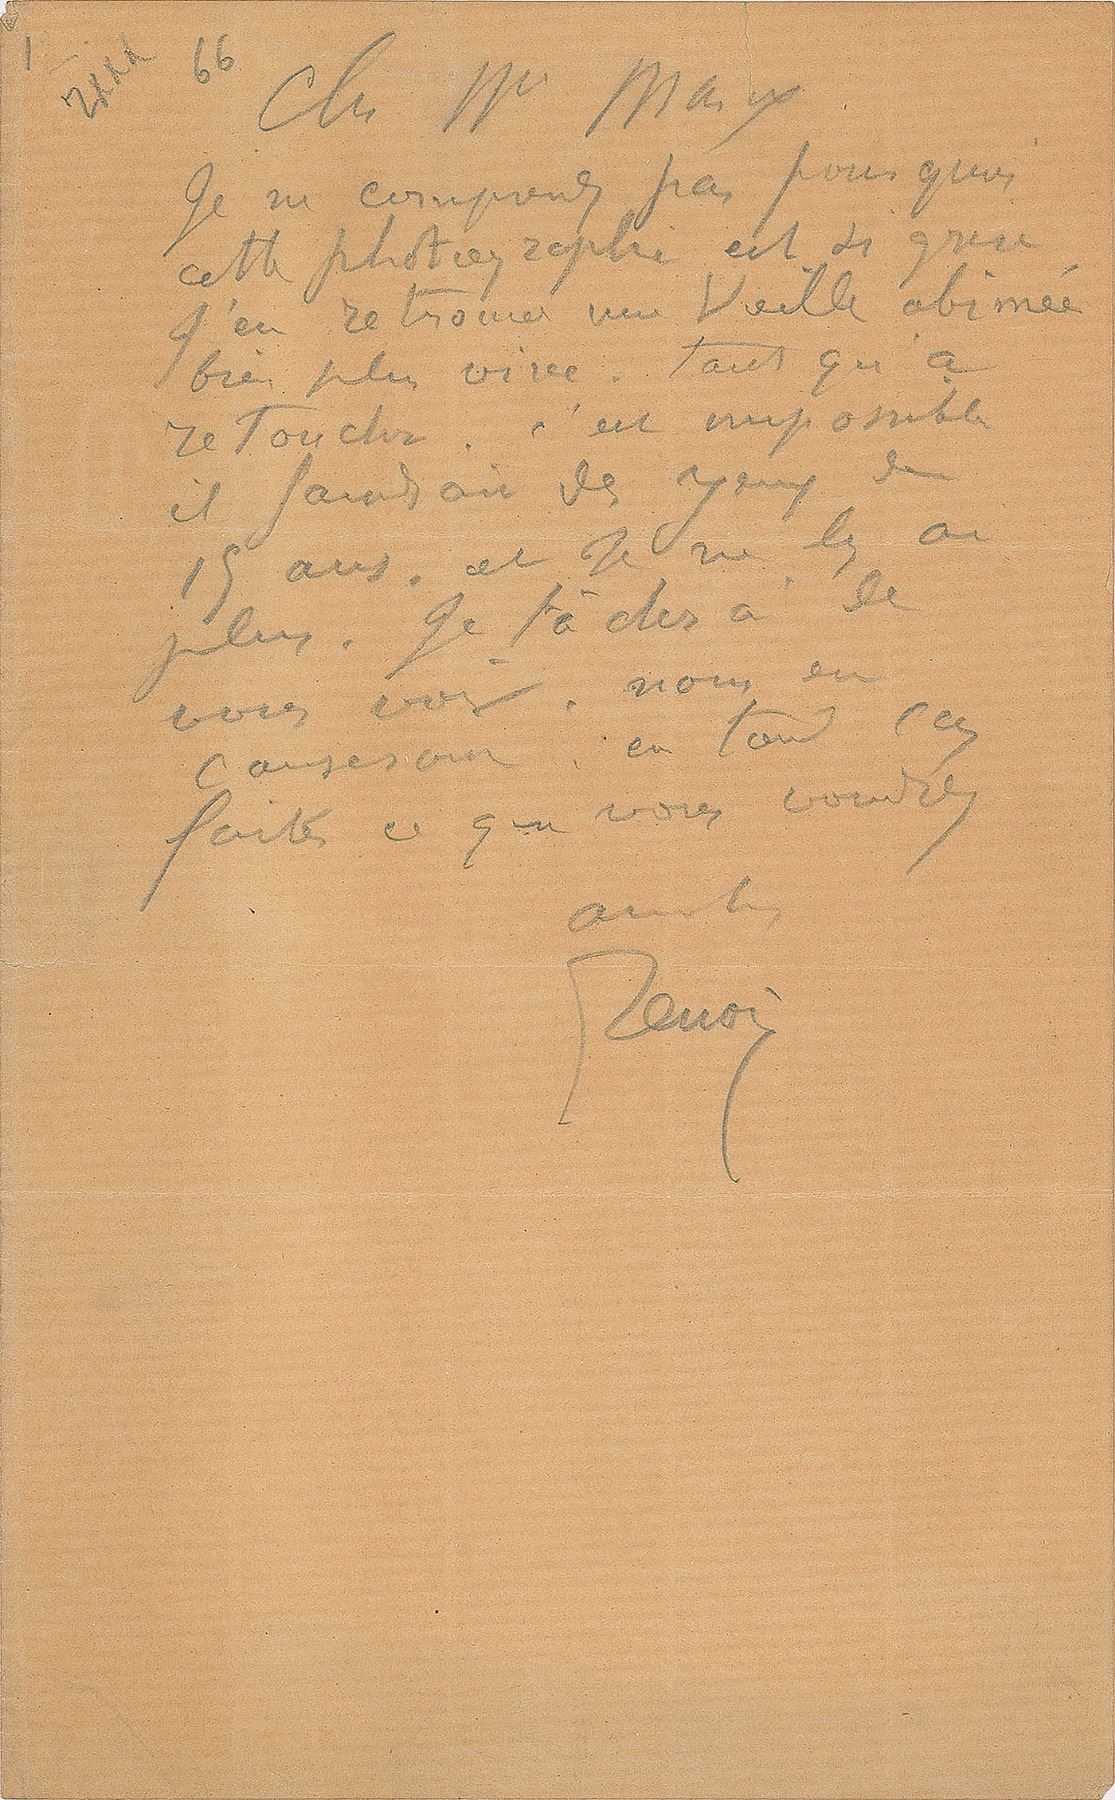 1
66
Cher Mr Marx
Je ne comprends pas pourquoi
cette photographie est si grise
J'en retrouve une Veille abimée
bien plus vive. tant qu'à
retoucher. c'est impossible
il faudrait des yeux de
15 ans. et Je ne les ai
plus. Je tâcherai de
vous voir. nous en
causerons. en tout cas
faites ce que vous voudrez
amitiés
Renoir